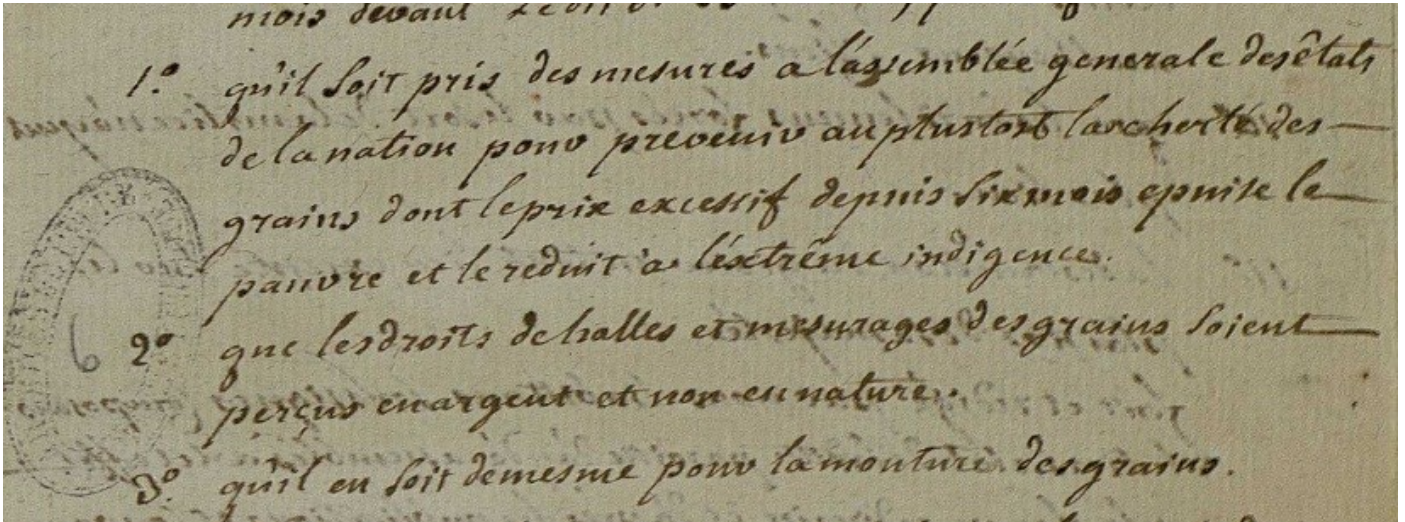 mois devant
1.° qu'il soit pris des mesures a l'assemblée generale des êtats
de la nation pour prevenir au plustost la cherté des
grains dont le prix excessif depuis six mois epuise le
pauvre et le reduit a l'éxtrême indigence.
2° que les droits de halles et mesurages des grains soient
perçus en argent et non en nature.
3° qu'il en soit de mesme pour la mouture des grains.